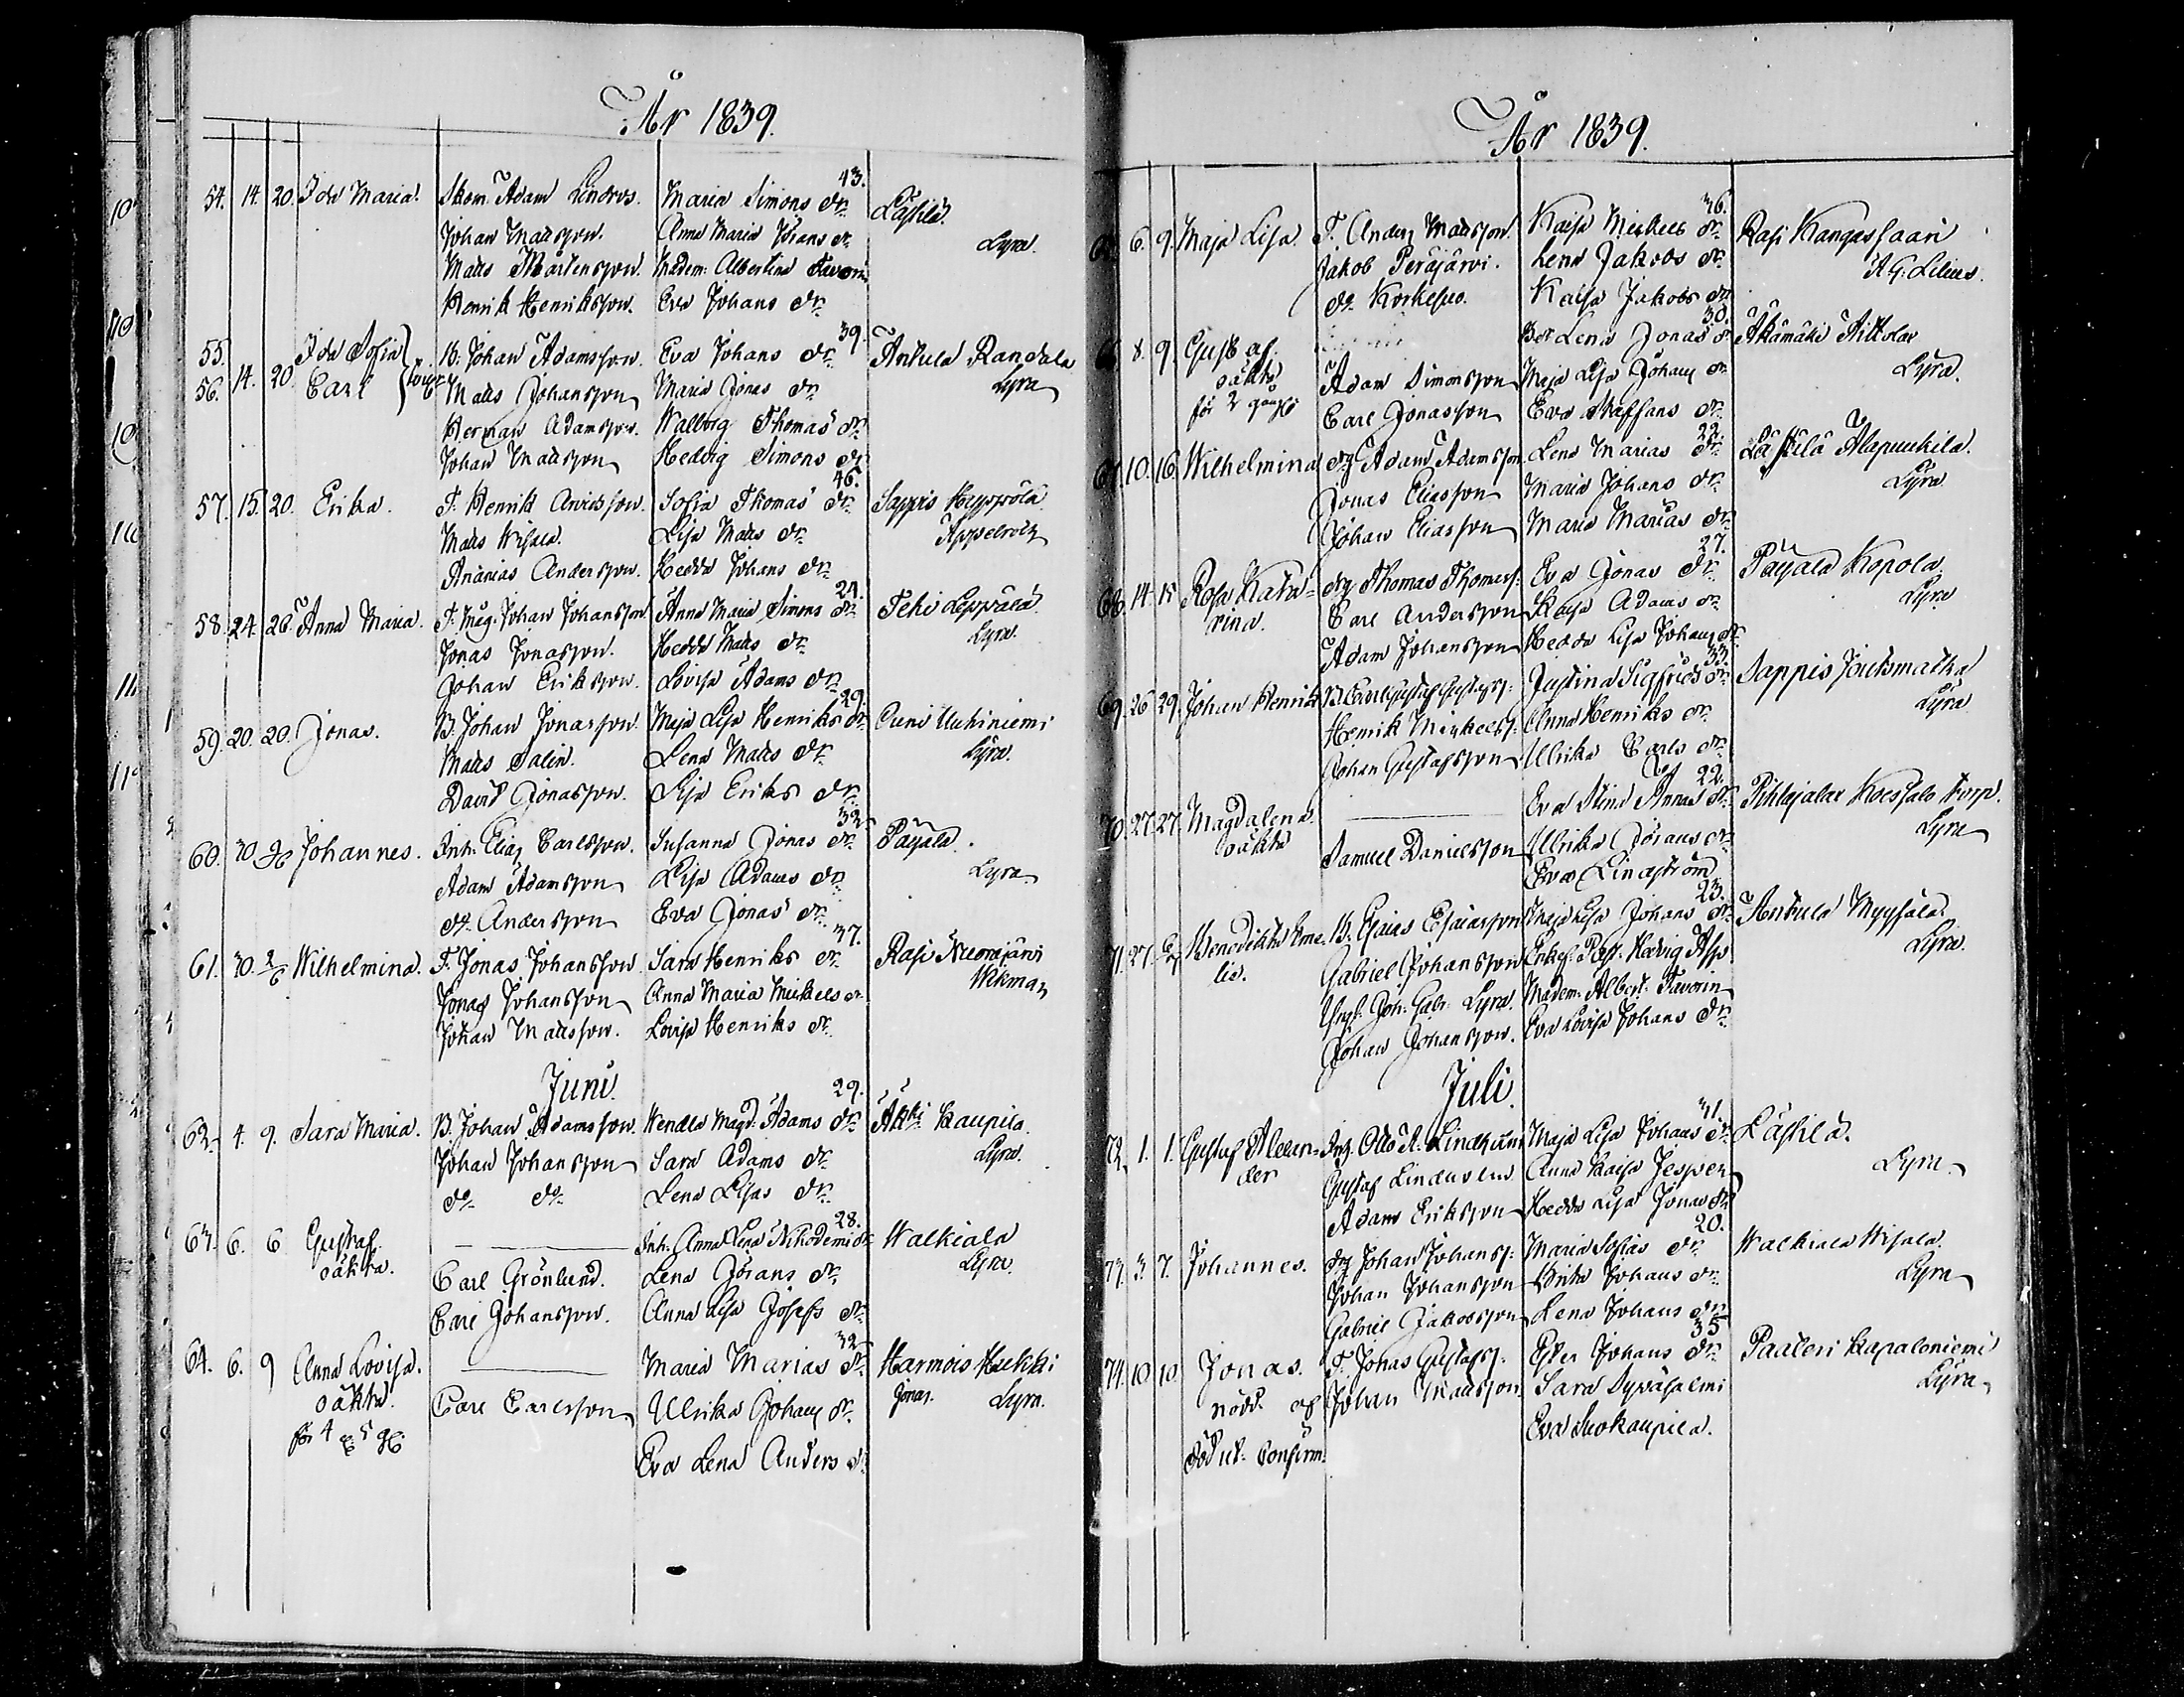 År 1839.
43.
54. 14. 20. Ida Maria. Skom. Adam Lindros. Maria Simons dr. Läsilä.
Johan Matsson. Anna Maria Jörans dr. Lyra.
Matts Mårtensson. Madem: Albertina Favorin
Henrik Henriksson. Eva Johans dr.
39.
55. Ida Sofia B. Johan Adamsson. Eva Johans dr. Anhula Randala
56. 14. 20. Carl Matts Johansson Maria Jonas dr. Lyra
Herman Adamsson. Walborg Thomas dr.
Johan Matsson Hedvig Simons dr.
46.
57. 15. 20. Erika. T. Henrik Arvidsson. Sofia Thomas dr. Sappis
Matts Lisa Matts dr. Appelroth
Ananias Andersson. Hedda Johans dr.
24.
58. 24. 26. Anna Maria. T. Måg. Johan Johansson Anna Maria Simons dr. Tehi Leppälä.
Jonas Jonasson. Hedda Matts dr. Lyra.
Johan Eriksson. Lovisa Adams dr.
29.
59. 20. 20. Jonas. B. Johan Jonasson. Maja Lisa Henriks dr. Uuhiniemi
Matts Salin. Lena Matts dr. Lyra.
David Jonasson. Lisa Eriks dr.
32
60. 30. Johannes. Inh. Elias Carlsson. Susanna Jonas dr. Päyälä.
Adam Adamsson Lisa Adams dr. Lyra
do. Andersson Eva Jonas dr.
37.
61. 30. 2/6 Wilhelmina. T. Jonas Johansson Sara Henriks dr. Rasi Nuorajärvi
Jonas Johansson Anna Maria Mickels dr. Wekman
Johan Matsson. Lovisa Henriks dr.
Juni.
29.
62. 4. 9. Sara Maria. B. Johan Adamsson. Wendla Magd. Adams dr. Äkki Kaupila.
Johan Johansson Sara Adams dr. Lyra.
do. do. Lena Lisas dr.
28.
63. 6. 6 Gustaf Inh. Anna Lena Nikodemi dr. Walkiala
oäkta. Carl Grönlund. Lena Jörans dr. Lyra.
Carl Johansson. Anna Lisa Josefs dr.
32
64. 6. 9 Anna Lovisa. Maria Marias dr. Harmois Heikki
oäkta. Carl Carlsson Ulrika Johans dr. Jonas. Lyra.
för 4 Eva Lena Anders dr.
År 1839.
36.
6. 9. Maja Lisa. T. Anders Matsson. Kaisa Mickels dr. Rasi Kangassaari
Jakob Peräjärvi. Lena Jakobs dr. A G. Lilius.
do. Korkesuo. Kaisa Jakobs dr.
30.
8. 9 Gustaf Lena Jonas dr. Äkämäki Aittolax
oäkta Adam Simonsson Maja Lisa Johans dr. Lyra.
för 2 gånge Carl Jonasson Eva Staffans dr.
22.
67. 10. 16. Wilhelmina drg Adam Adamsson Lena Marias dr. Läsilä Alapuukila.
Jonas Eliasson Maria Johans dr. Lyra
Johan Eliasson Maria Marias dr.
27.
68. 14. 15 Rosa Kata= drg Thomas Thomass: Eva Jonas dr. Päyälä Kopola.
rina. Carl Andersson Kaisa Adams dr. Lyra
Adam Johansson Hedda Lisa Johans dr.
33.
69. 26 29. Johan Henrik B. Carl Gustaf Gustafss: Justina Sigfrids dr. Sappis Joutsmatka
Henrik Mickelss: Anna Henriks dr. Lyra
Johan Gustafsson. Ulrika Carls dr.
22.
70. 27. 27. Magdalena Eva Stina Annas dr. Pihlajalax Koessalo torp.
oäkta Samuel Danielsson Ulrika Jörans dr. Lyra
Eva Lindström
23.
71. 27. Benedikta Eme= B. Esaias Esaiasson Maja Lisa Johans dr. Anhula Myysälä.
lia. Gabriel Johansson Enkef. Past. Hedvig Asp Lyra.
Joh: Gabr: Lyra. Madem: Albert: Favorin
Johan Johansson. Eva Lovisa Johans dr.
Juli.
31.
72. 1. 1. Gustaf Alexan= Otto R. Lindholm Maja Lisa Johans dr. Läsilä.
der Gustaf Lindholm Anna Kaisa Jesper Lyra
Adam Eriksson Hedda Lisa Jonas dr.
20.
73. 3. 7. Johannes. drg Johan Johanss: Maria Sofias dr. Walkiala Wisala.
Johan Johansson Brita Johans dr. Lyra
Gabriel Jakobsson Lena Johans dr.
35
74. 10 10 Jonas. T. Johas Gustafss: Ester Johans dr. Paaleri Kapaloniemi
nödd. af Johan Matsson Sara Syväsalmi Lyra
död ut. Confirm. Eva Suokaupila.